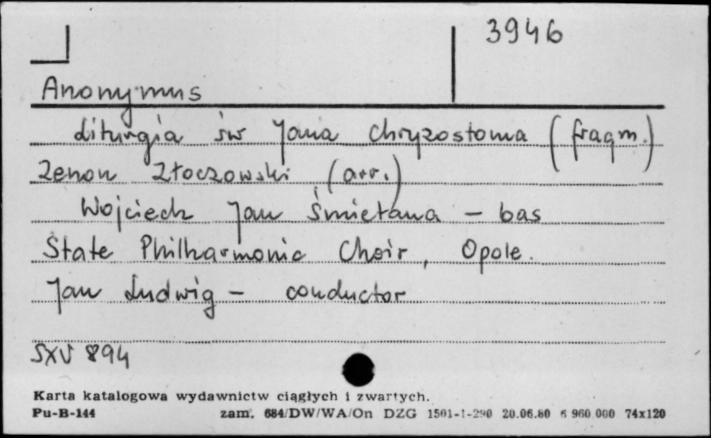 3946
Anonymus
Liturgia św Jana Chryzostoma (fragm.)
Zenon Złoczowski (arr.)
Wojciech Jan Śmietana - bas
State Philharmonic Choir, Opole.
Jan Ludwig - conductor
SXV 894
Karta katalogowa wydawnictw ciągłych i zwartych.
Pu-B-144 zam. 684/DW/WA/On DZG 1501-1-290 20.06.80 6 960 000 74x120